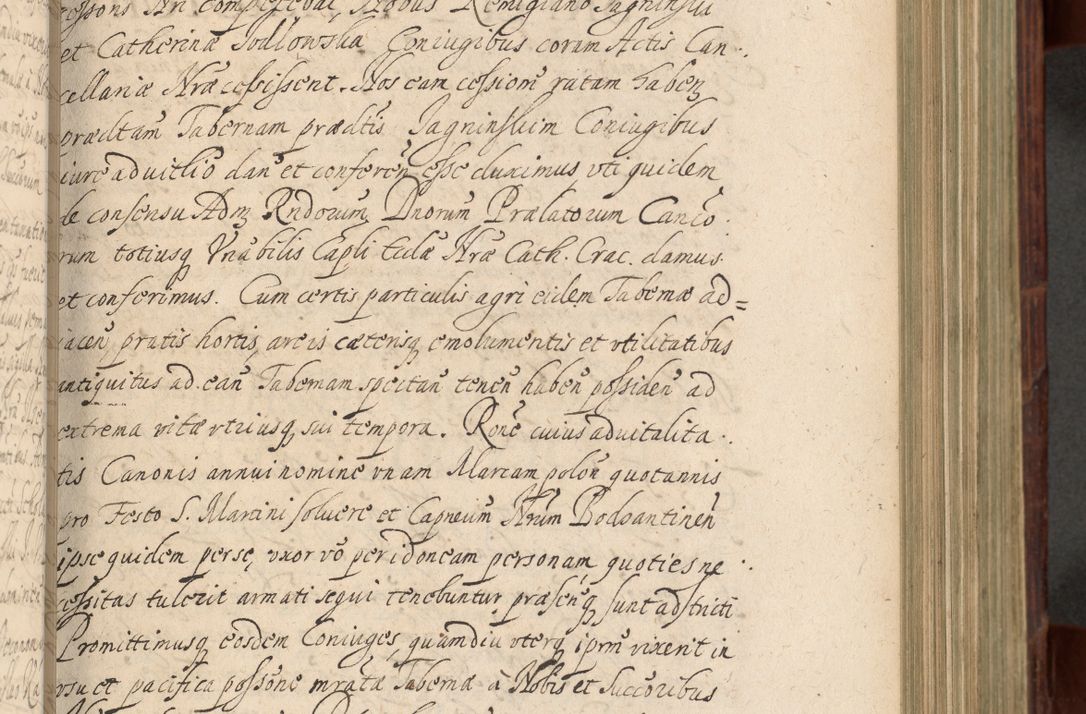 et Catherinæ Jodlowska Coniugibus coram Actis Can
cellariæ Nræ cessissent. Nos eam cessionē ratam habeñ
prædtam Tabernam prædtis Jagninskim Coniugibus
iure aduitlio dañ et conferēn esse duximus vti quidem
de consensu Admꝫ Rndorum Dnorum Prælatorum Canco
rum totiusq Vnabilis Capli Ecclæ Nræ Cath. Crac. damus
et conferimus. Cum certis particulis agri eidem Tabernæ ad=
iaceñ pratis hortis areis cæterisq emolumentis et vtilitatibus
antiquitus ad eañ Tabernam spectañ teneñ habeñ possideñ ad
extrema vitæ vtriusq sui tempora. Ronē cuius aduitalita
tis Canonis annui nomine vnam Marcam poloñ quotannis
pro Festo S. Martini soluere et Capneum Nrum Bodzantineñ
ipse quidem per se, vxor vō per idoneam personam quoties ne
cessitas tulerit armati sequi tenebuntur, præsenq sunt adstricti
Promittimusq eosdem Coniuges, quamdiu vterq ipřm vixerit in
vsu et pacifica possōne mratæ Tabernæ à Nobis et Succoribus